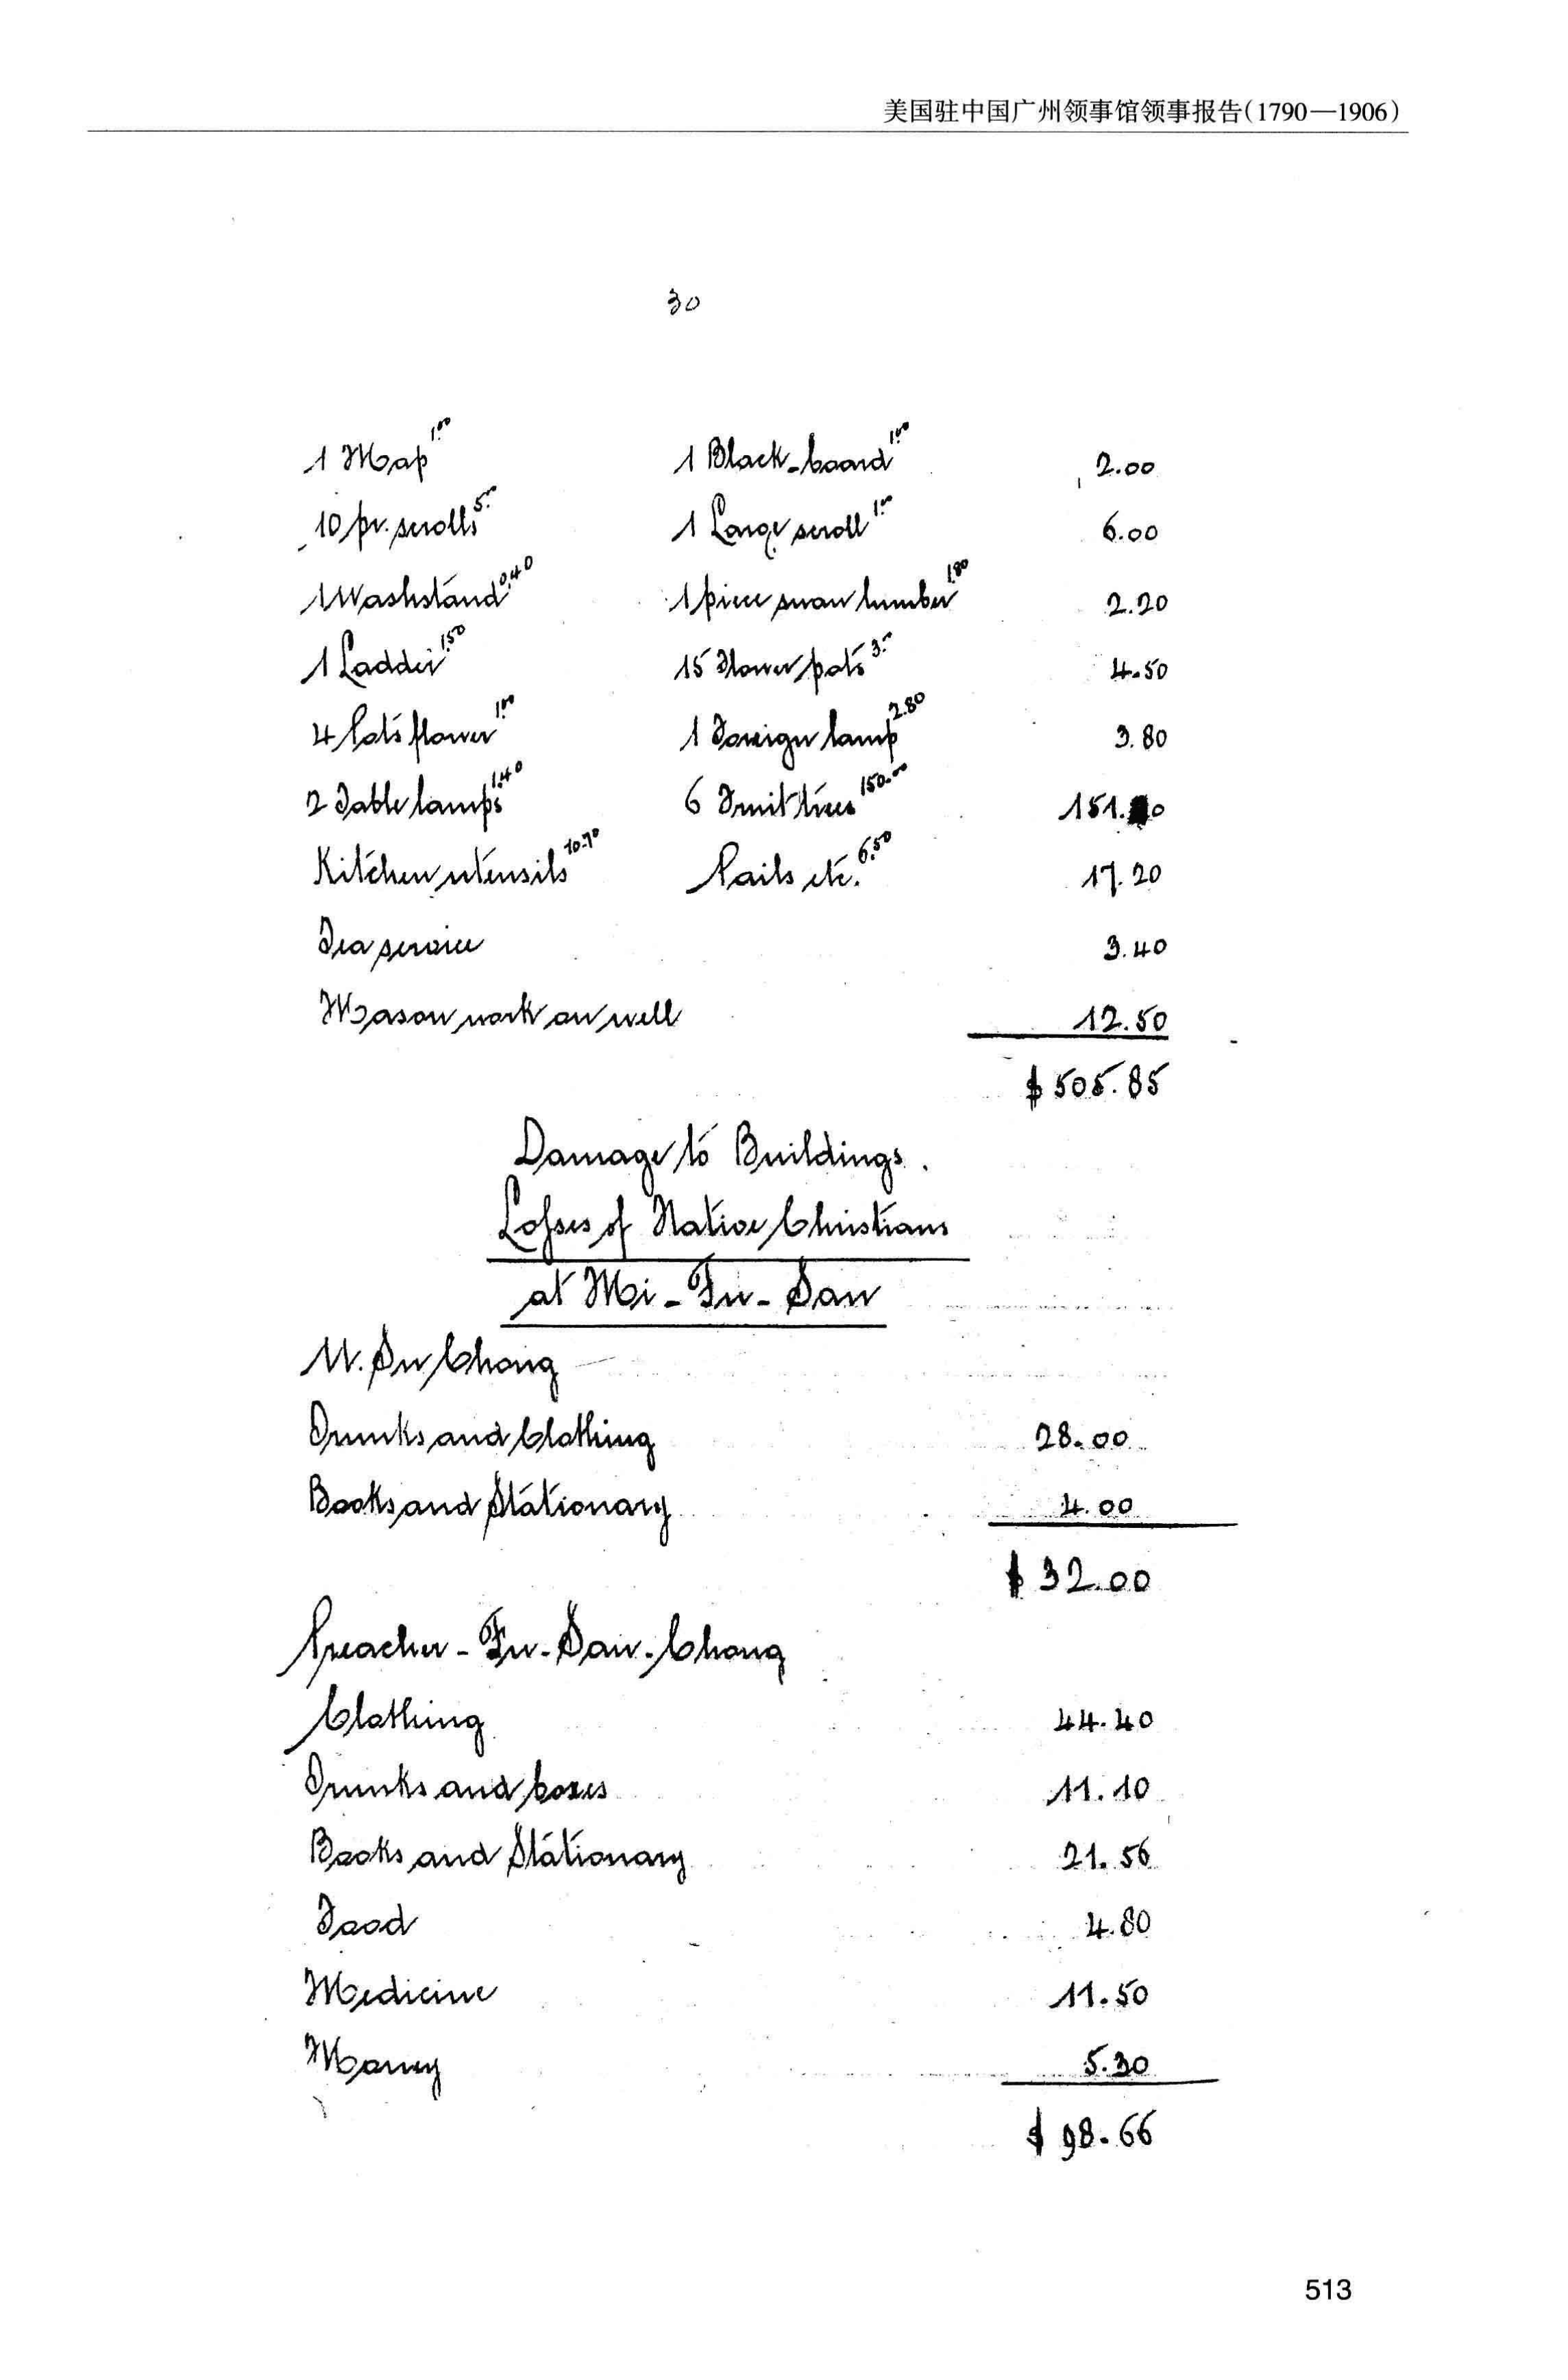 美国驻中国广州领事馆领事报告(1790—1906)
30
1 Map 1.00 1 Black-board 1.00 2.00
10 pr. scrolls 5.00 1 Large scroll 1.00 6.00
1 Washstand 0.40 1 piece lumber 1.80 2.20
1 Ladder 1.50 15 Flower pots 3.00 4.50
4 Pots flower 1.00 1 Foreign lamp 2.80 3.80
2 Table lamps 1.40 6 Fruit trees 150.00 151.0
Kitchen utensils 10.70 Pails etc. 6.50 17.20
Tea service 3.40
Mason work on well 12.50
$ 505.85
Damage to Buildings.
Losses of Native Christians
at Mi-Fu-San
W. Su Chong
Trunks and Clothing 28.00
Books and Stationary 4.00
$ 32.00
Preacher-Fu-San-Chong
Clothing 44.40
Trunks and boxes 11.10
Books and Stationary 21.56
Food 4.80
Medicine 11.50
Money 5.30
$ 98.66
513